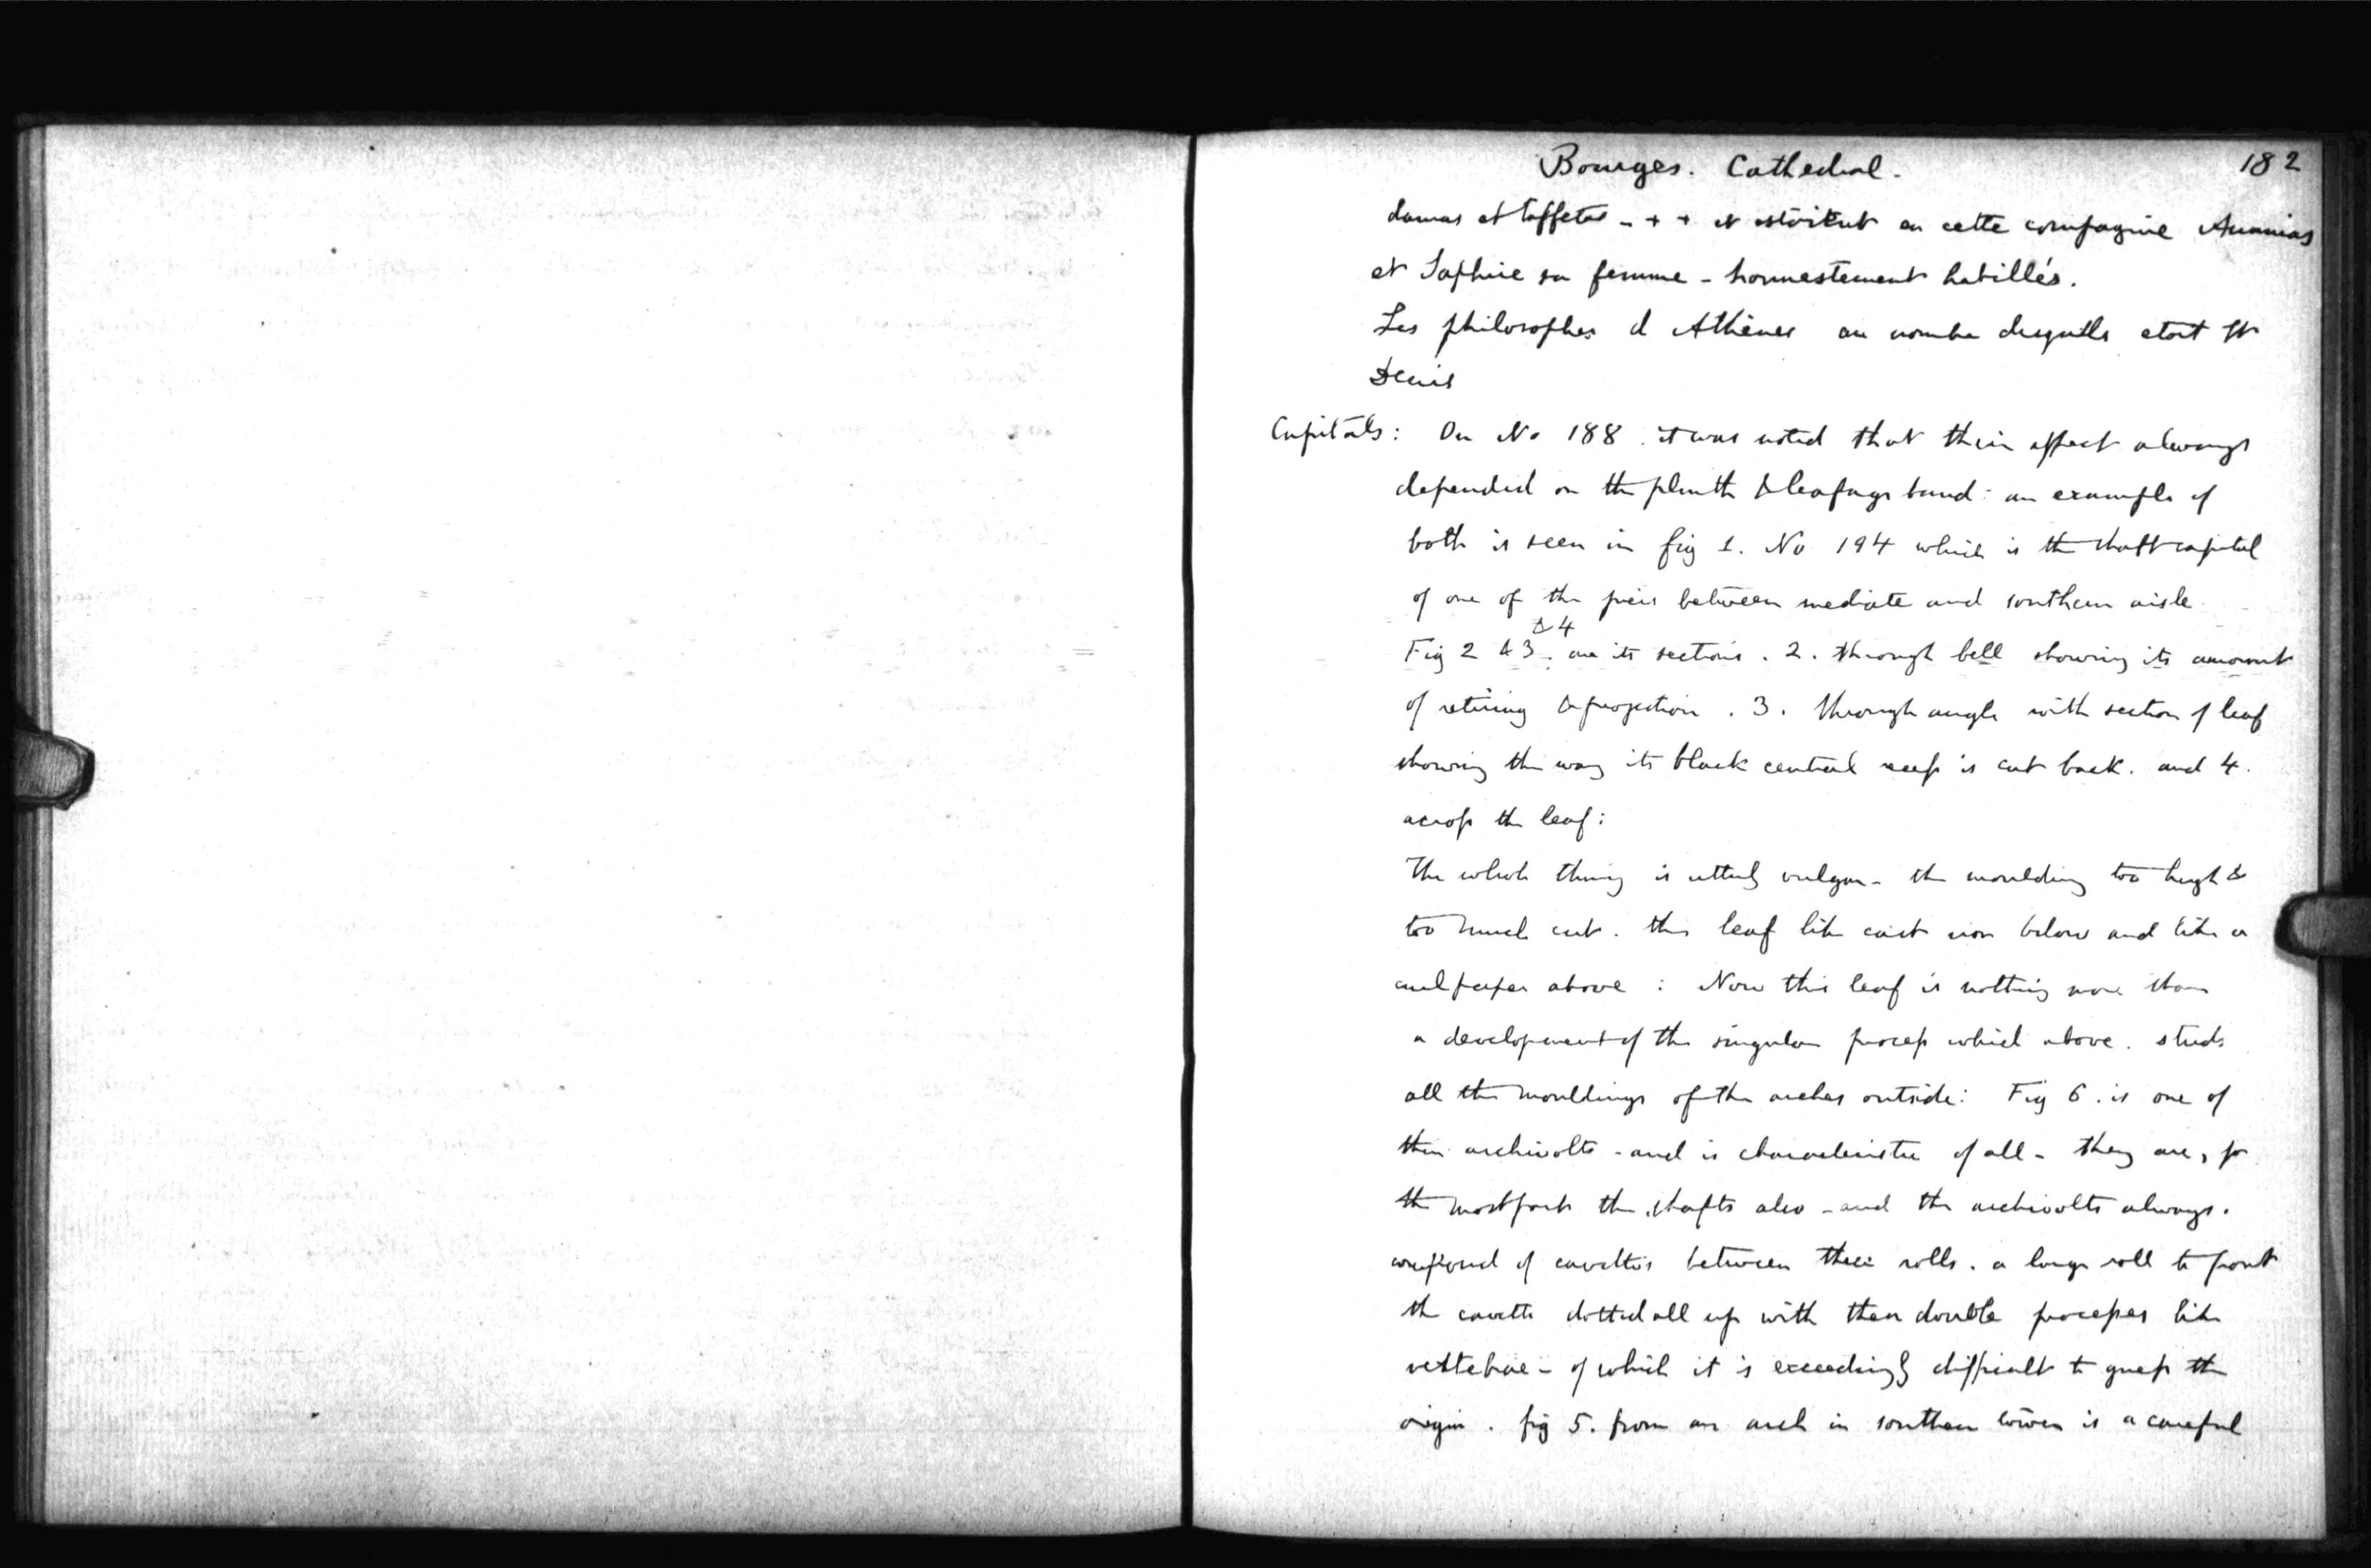 Bourges. Cathedral.
182
damas et taffetas - + + et estoient en cette compagnie Ananias
et Saphire sa femme - honnestement habillés.
Les philosophes d Athènes au nombre desquells etoit St
Denis
Capitals: On No 188. it was noted that their effect always
depended on the plinth & leafage band: an example of
both is seen in fig 1. No 194 which is the shaft capital
of one of the piers between mediate and southern aisle
& 4
Fig 2 & 3. are its sections. 2. through bell showing its amount
of retiring & projection. 3. through angle with section of leaf
showing the way its black central recess is cut back. and 4.
across the leaf:
The whole thing is utterly vulgar - the moulding too high &
too much cut. the leaf like cast iron below and like a
curl paper above: Now this leaf is nothing more than
a development of the singular process which above. studs
all the mouldings of the arches outside: Fig 6. is one of
their archivolts - and is characteristic of all - they are, for
the most part the shafts also - and the archivolts always.
composed of cavettos between three rolls. a large roll to front
the cavetto dotted all up with these double processes like
vertebrae - of which it is exceedingly difficult to guess the
origin. fig 5. from an arch in southern tower is a careful